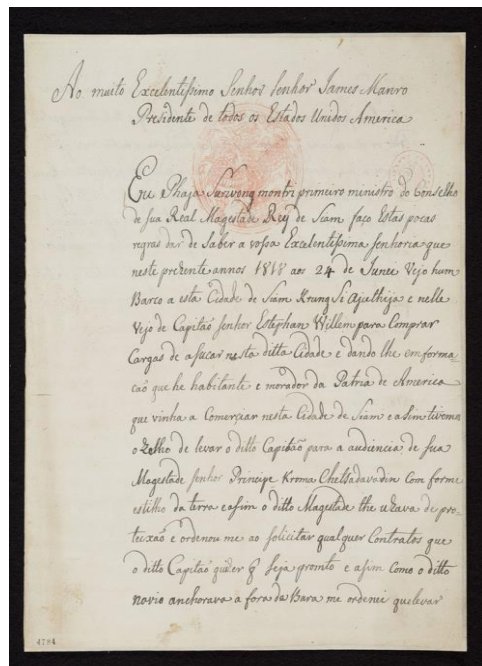 Ao muito Excelentissimo Senhor Senhor James Manro
Prezidente de todos os Estados Unidos America
Eu Phaja Surivong montri primeiro ministro do Conselho
da sua Real Magestade Rey de Siam faço Estas pocas
regras dar de Saber a vossa Excelentissima senhoria que
neste prezente annos 1818 aos 24 de Junei Vejo hum
Barco a esta Cidade de Siam Krung Si Ajuthija e nelle
Vejo de Capitaõ senhor Estephan Willem para Comprar
Cargas de asucar nesta ditta Cidade e dando lhe enforma-
caõ que he habitante e morador da Patria de America
que vinha a Comerçiar nesta Cidade de Siam e asim tivemos
o Zelho de levar o ditto Capitaõ para a audiencia de sua
Magestade senhor Principe Kroma Chetsadavadin Com forme
estilho da terra e asim o ditto Magestade the uzava de pro-
teixaõ e ordenou me ao solicitar qualquer Contratos que
o ditto Capitaõ quizer q seja promto e asim Como o ditto
navio anchorava a fora da Bara me ordenei que levar
4784